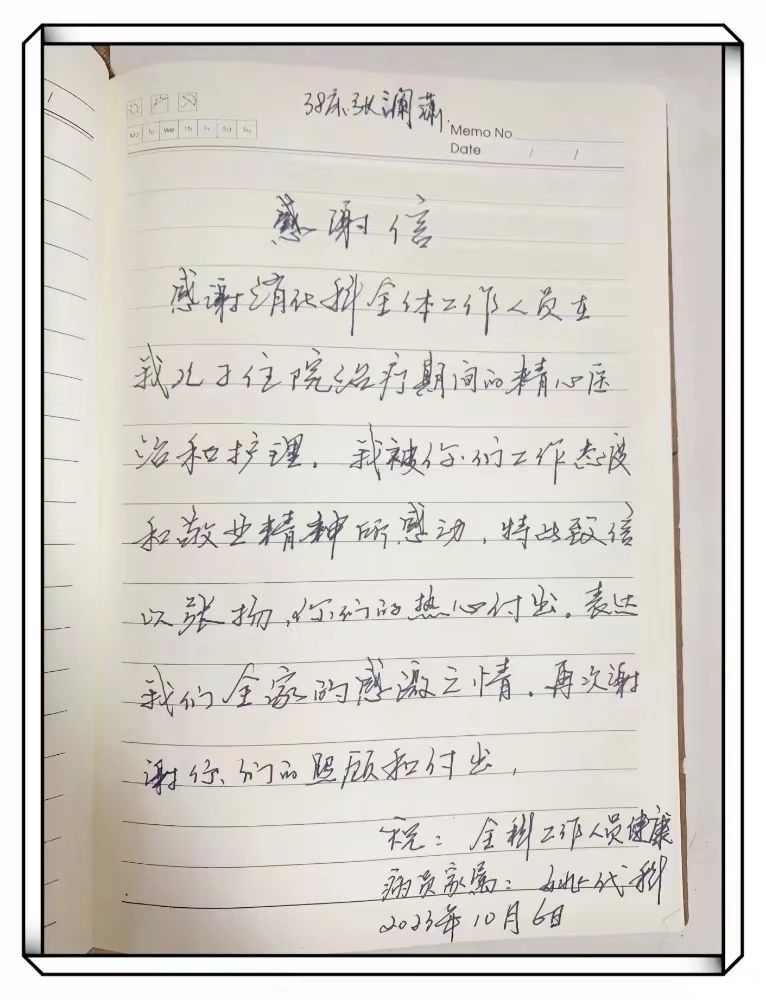 38床张澜潇
Mo Tu We Th Fr Sa Su
Memo No.
Date / /
感谢信
感谢消化科全体工作人员在
我儿子住院治疗期间的精心医
治和护理。我被你们工作态度
和敬业精神所感动，特此致信
以张扬，你们的热心付出。表达
我们全家的感激之情。再次谢
谢你们的照顾和付出，
祝：全科工作人员健康
病员家属：代科
2023年10月6日